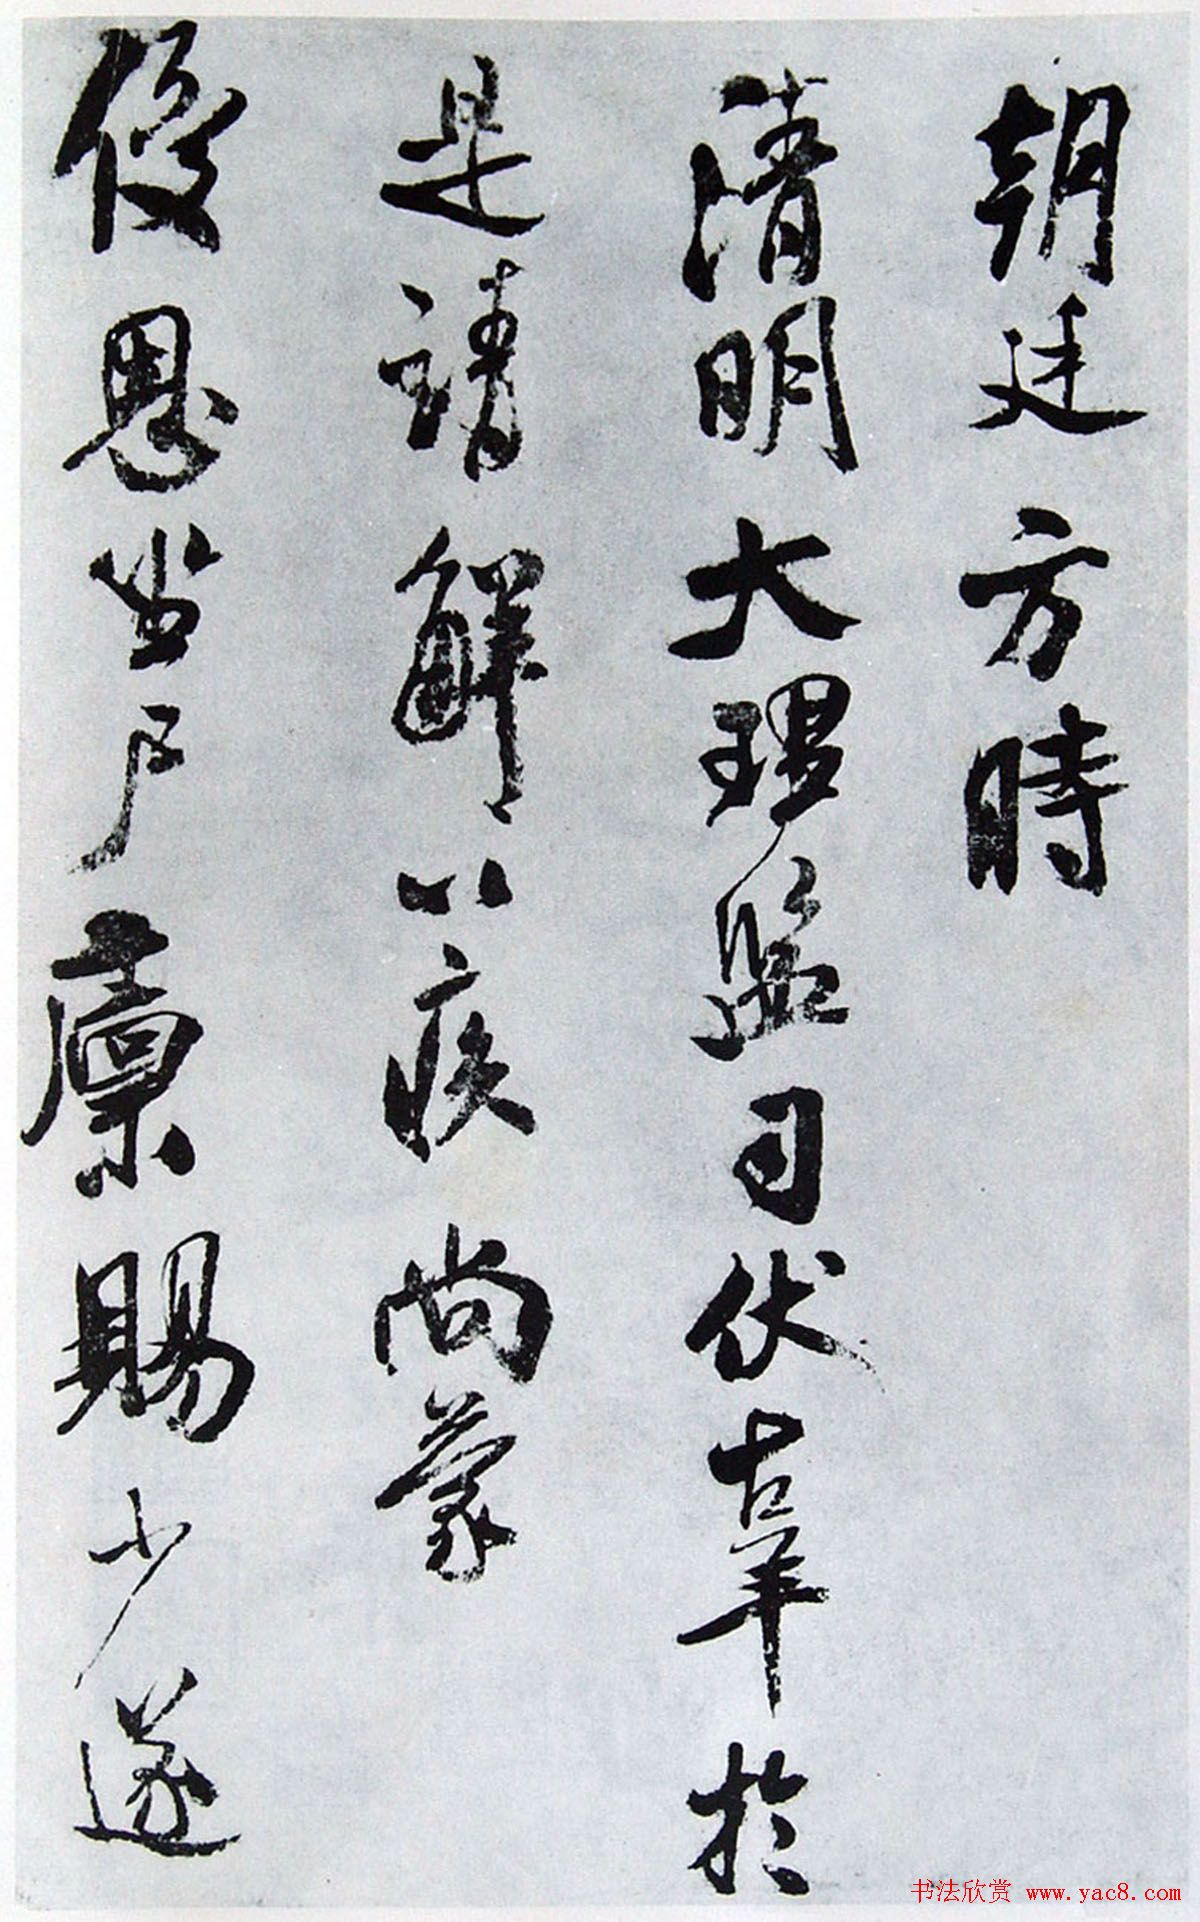 朝廷方時
清明大理監司伏辜於
是請解以疾尚蒙
優恩坐尸廩賜少遂
书法欣赏 www.yac8.com